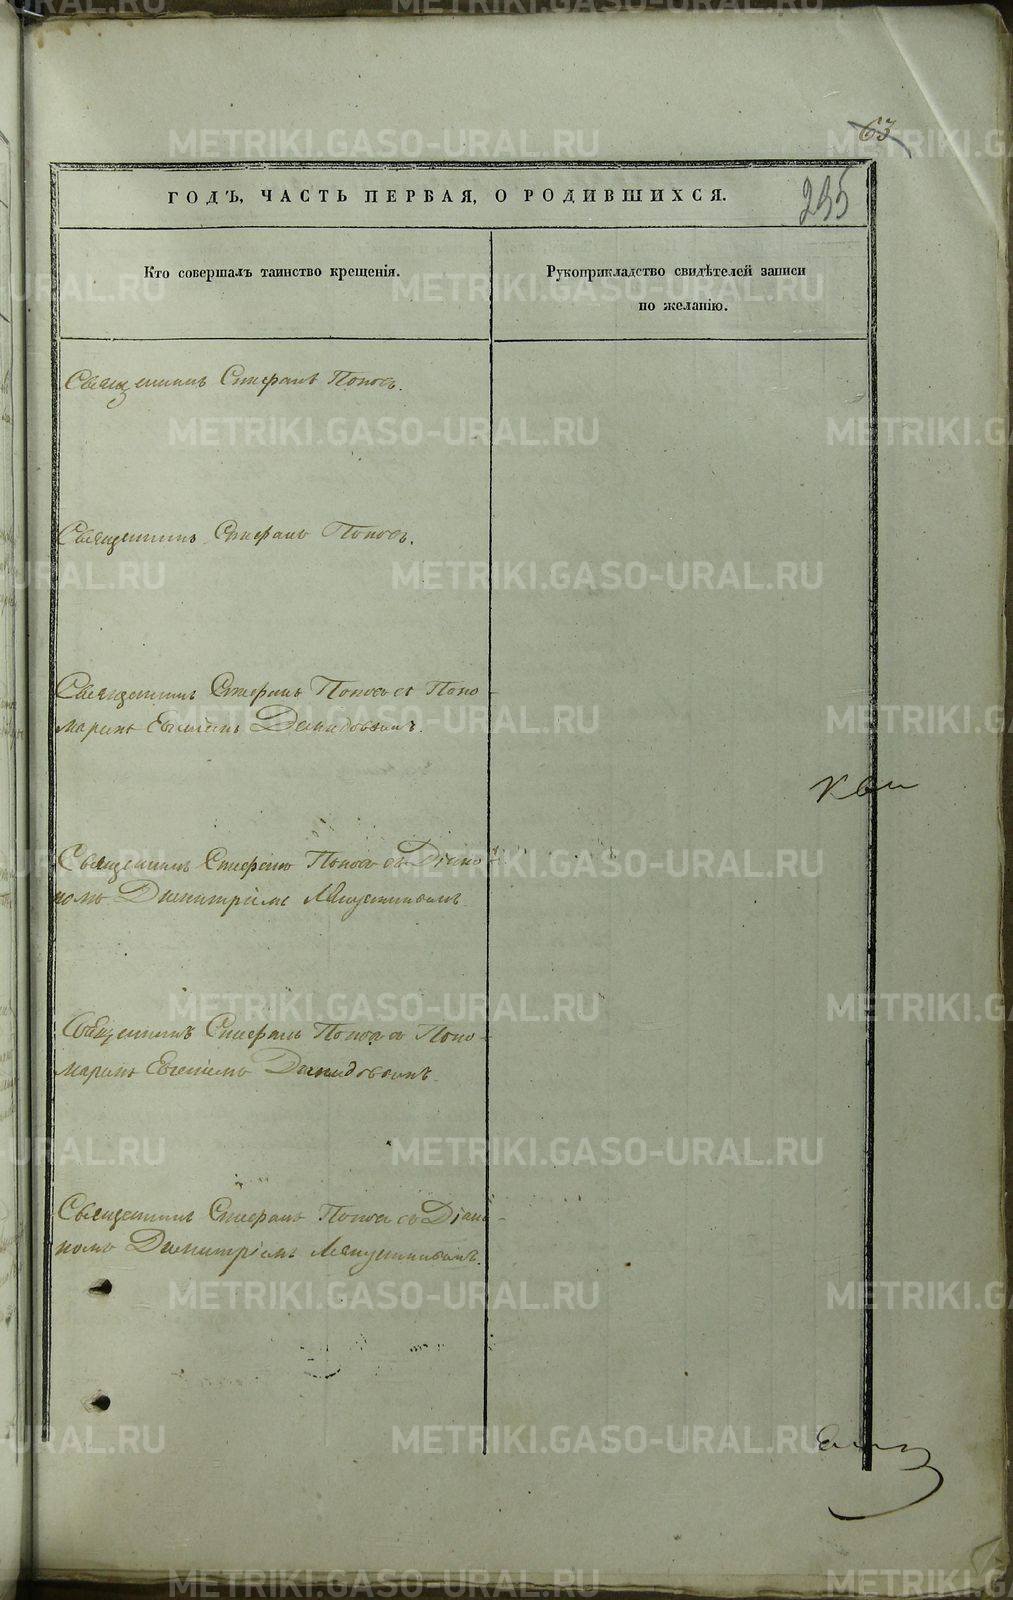 63
295
ГОДЪ, ЧАСТЬ ПЕРВАЯ, О РОДИВШИХСЯ.
Кто совершалъ таинство крещенія.
Рукоприкладство свидѣтелей записи
по желанію.
Священникъ Стефанъ Поповъ.
Священникъ Стефанъ Поповъ.
Священникъ Стефанъ Поповъ съ Поно-
маремъ Евгеніемъ Демидовымъ.
Священникъ Стефанъ Поповъ съ Діако-
номъ Димитріемъ
Священникъ Стефанъ Поповъ съ Поно-
маремъ Евгеніемъ Демидовымъ.
Священникъ Стефанъ Поповъ съ Діако-
номъ Димитріемъ
METRIKI.GASO-URAL.RU